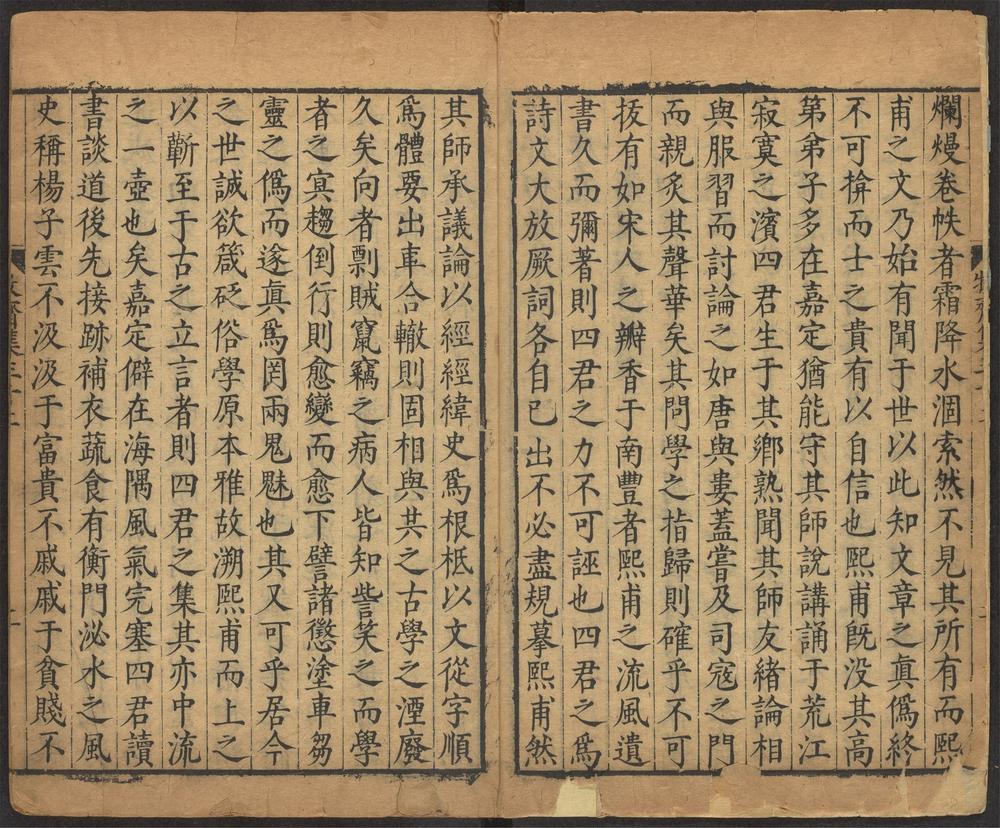 爛熳卷帙者霜降水涸索然不見其所有而熙
甫之文乃始有聞于世以此知文章之眞僞終
不可揜而士之貴有以自信也熙甫旣没其高
第弟子多在嘉定猶能守其師說講誦于荒江
寂寞之濱四君生于其鄉熟聞其師友緒論相
與服習而討論之如唐與婁蓋嘗及司寇之門
而親炙其聲華矣其問學之指歸則確乎不可
拔有如宋人之瓣香于南豐者熙甫之流風遺
書久而彌著則四君之力不可誣也四君之爲
詩文大放厥詞各自已出不必盡規摹熙甫然
其師承議論以經經緯史爲根柢以文從字順
爲體要出車合轍則固相與共之古學之湮廢
久矣向者剽賊竄竊之病人皆知訾笑之而學
者之㝠趨倒行則愈變而愈下譬諸懲塗車芻
靈之僞而遂眞爲罔兩鬼魅也其又可乎居今
之世誠欲箴砭俗學原本雅故溯熙甫而上之
以蘄至于古之立言者則四君之集其亦中流
之一壺也矣嘉定僻在海隅風氣完塞四君讀
書談道後先接跡補衣蔬食有衡門泌水之風
史稱楊子雲不汲汲于富貴不戚戚于貧賤不